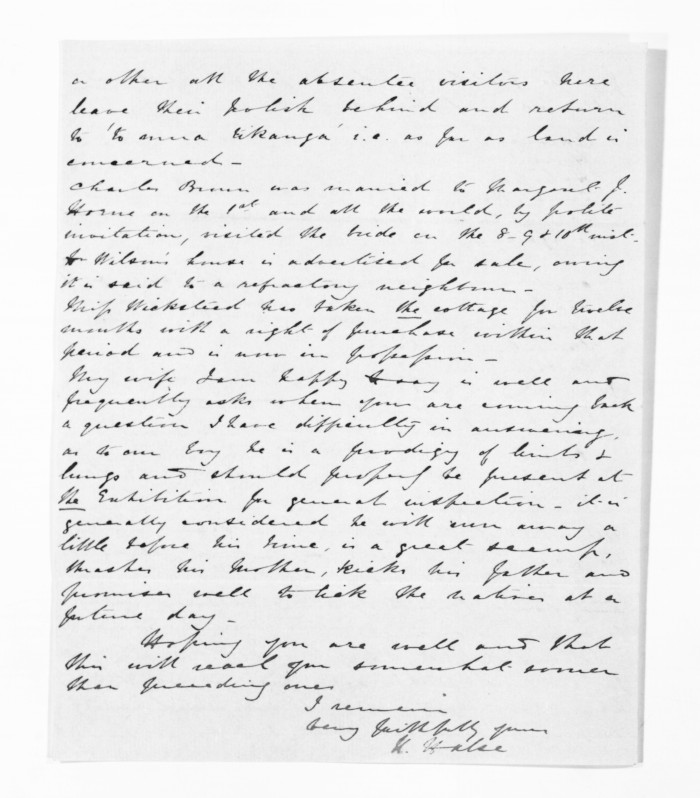 or other all the absentee visitors here
leave their polish behind and return
to 'to muna tikanga' i.e. as far as land is
concerned -
Charles Brown was married to Margaret J.
Horne on the 1st and all the world, by polite
invitation, visited the bride on the 8 - 9 & 10th inst -
Wilson's house is advertised for sale, owing
it is said to a refractory neighbour -
Miss Wicksteed has taken the cottage for twelve
months with a right of purchase within that
period and is now in possession -
My wife I am happy to say is well and
frequently asks when you are coming back
a question I have difficulty in answering,
as to our boy he is a prodigy of limbs &
lungs and should properly be present at
the Exhibition for general inspection - it is
generally considered he will run away a
little before his time, is a great scamp,
thrashes his mother, kicks his father and
promises well to lick the natives at a
future day -
Hoping you are well and that
this will reach you somewhat sooner
than preceding ones
I remain
very faithfully yours
H. Halse